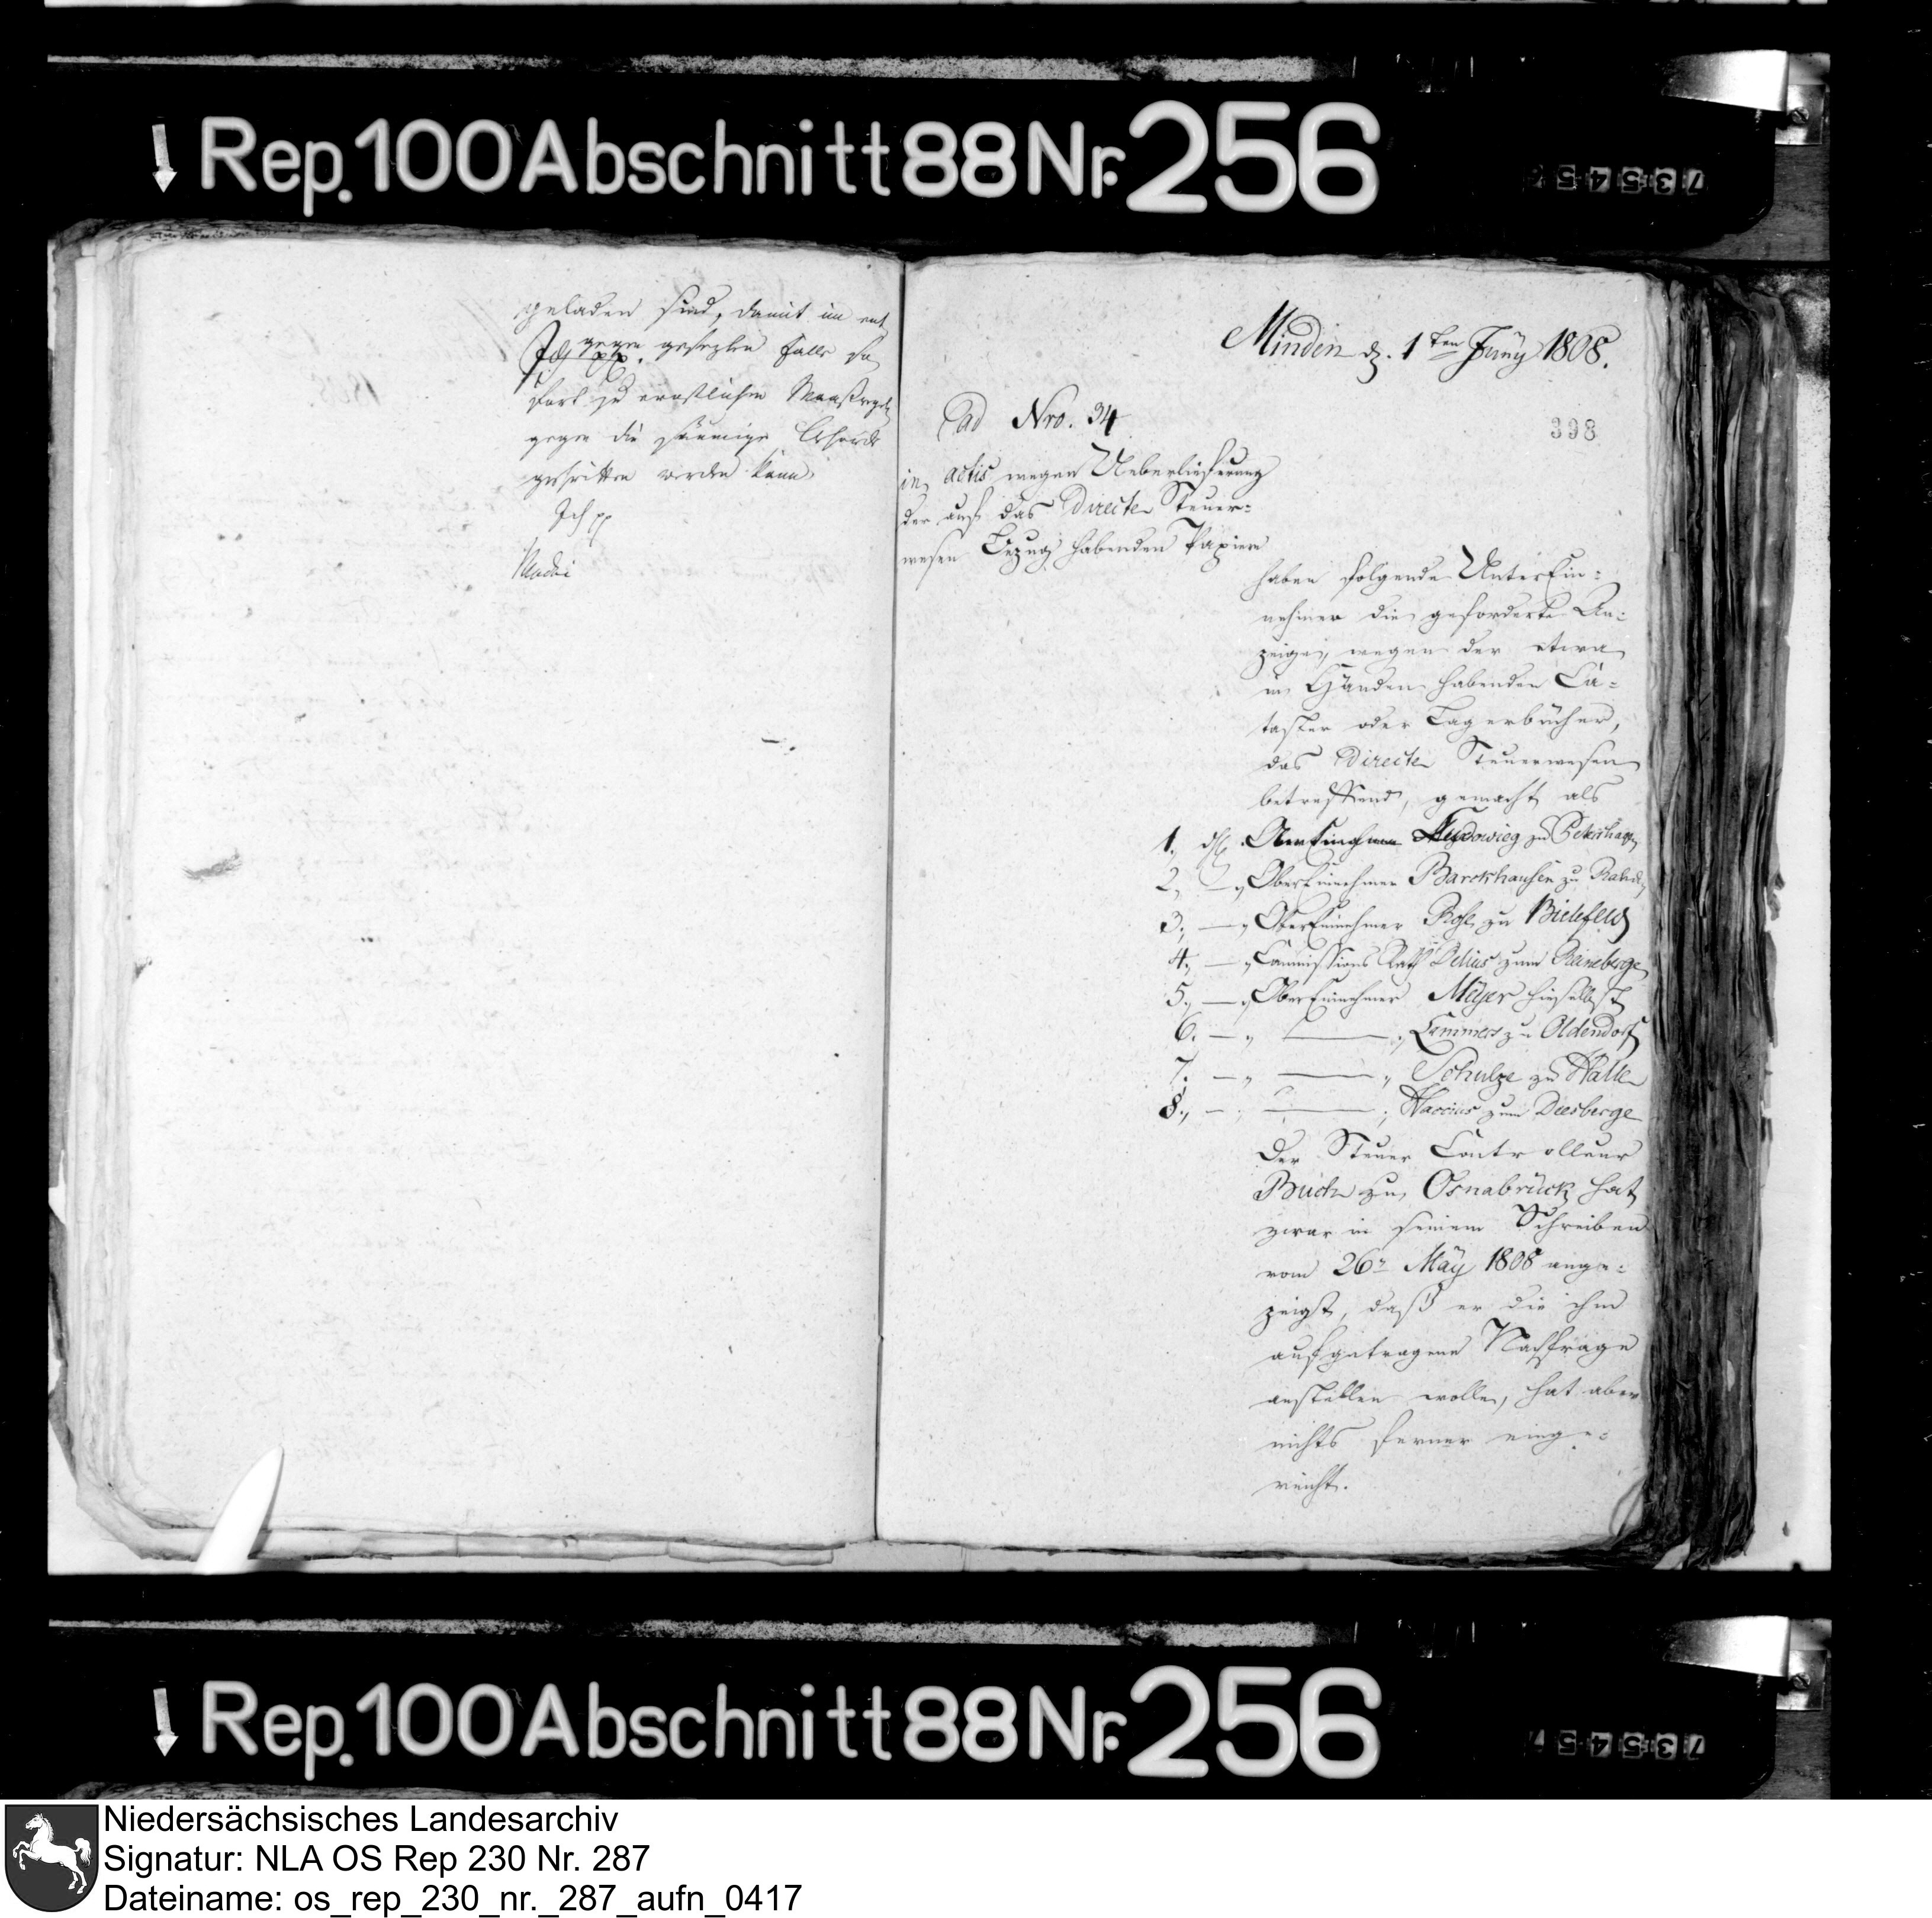 Rep. 100 Abschnitt 88 Nr. 256
73545
geladen sind, damit im ent
gegen gesezten Falle so
Ich pp.
fort zu ernstlichen Maaßregeln
gegen die säumige Behörde
geschritten werden kann.
Ich pp
Minden d. 1ten Juny 1808.
398
Ad Nro. 34
in actis wegen Ueberlieferung
der auf das directe Steuer-
wesen Bezug habenden Papiere
haben folgende UnterEin-
nehmer die geforderte An-
zeige, wegen der etwa
in Händen habenden Ca-
taster oder Lagerbücher,
das directe Steuerwesen
betreffend, gemacht als
1., Ludowieg zu Petershagen
2., — OberEinnehmer Barckhausen zu Rahden
3., — OberEinnehmer Rose zu Bielefeld
4., — Commissions Rath Delius zum Reineberge
5., — OberEinnehmer Meyer hieselbst
6. — — Lemmers zu Oldendorf
7. — — Schulze zu Halle
8., — — Haccius zum Diesberge
Der Steuer Controlleur
Buch zu Osnabrück hat
zwar in seinem Schreiben
vom 26n May 1808 ange-
zeigt, daß er die ihm
aufgetragene Nachfrage
anstellen wolle, hat aber
nichts ferner einge-
reicht.
Rep. 100 Abschnitt 88 Nr. 256
73545
Niedersächsisches Landesarchiv
Signatur: NLA OS Rep 230 Nr. 287
Dateiname: os_rep_230_nr._287_aufn_0417